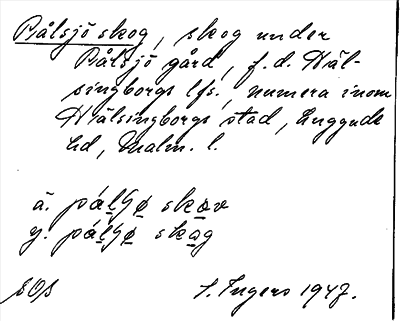 Pålsjö skog, skog under
Pålsjö gård, f.d. Häl-
singborgs lfs., numera inom
Hälsingborgs stad, Luggude
hd, Malm. l.
ä. pá skov
y. pá skog
I. Ingers 1947.